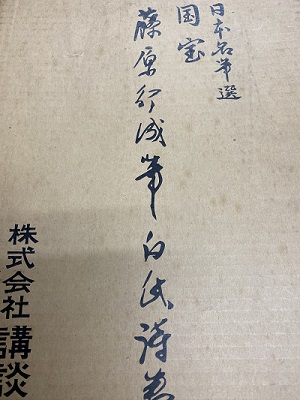 日本名筆選
国宝
藤原行成筆白氏詩巻
株式会社講談